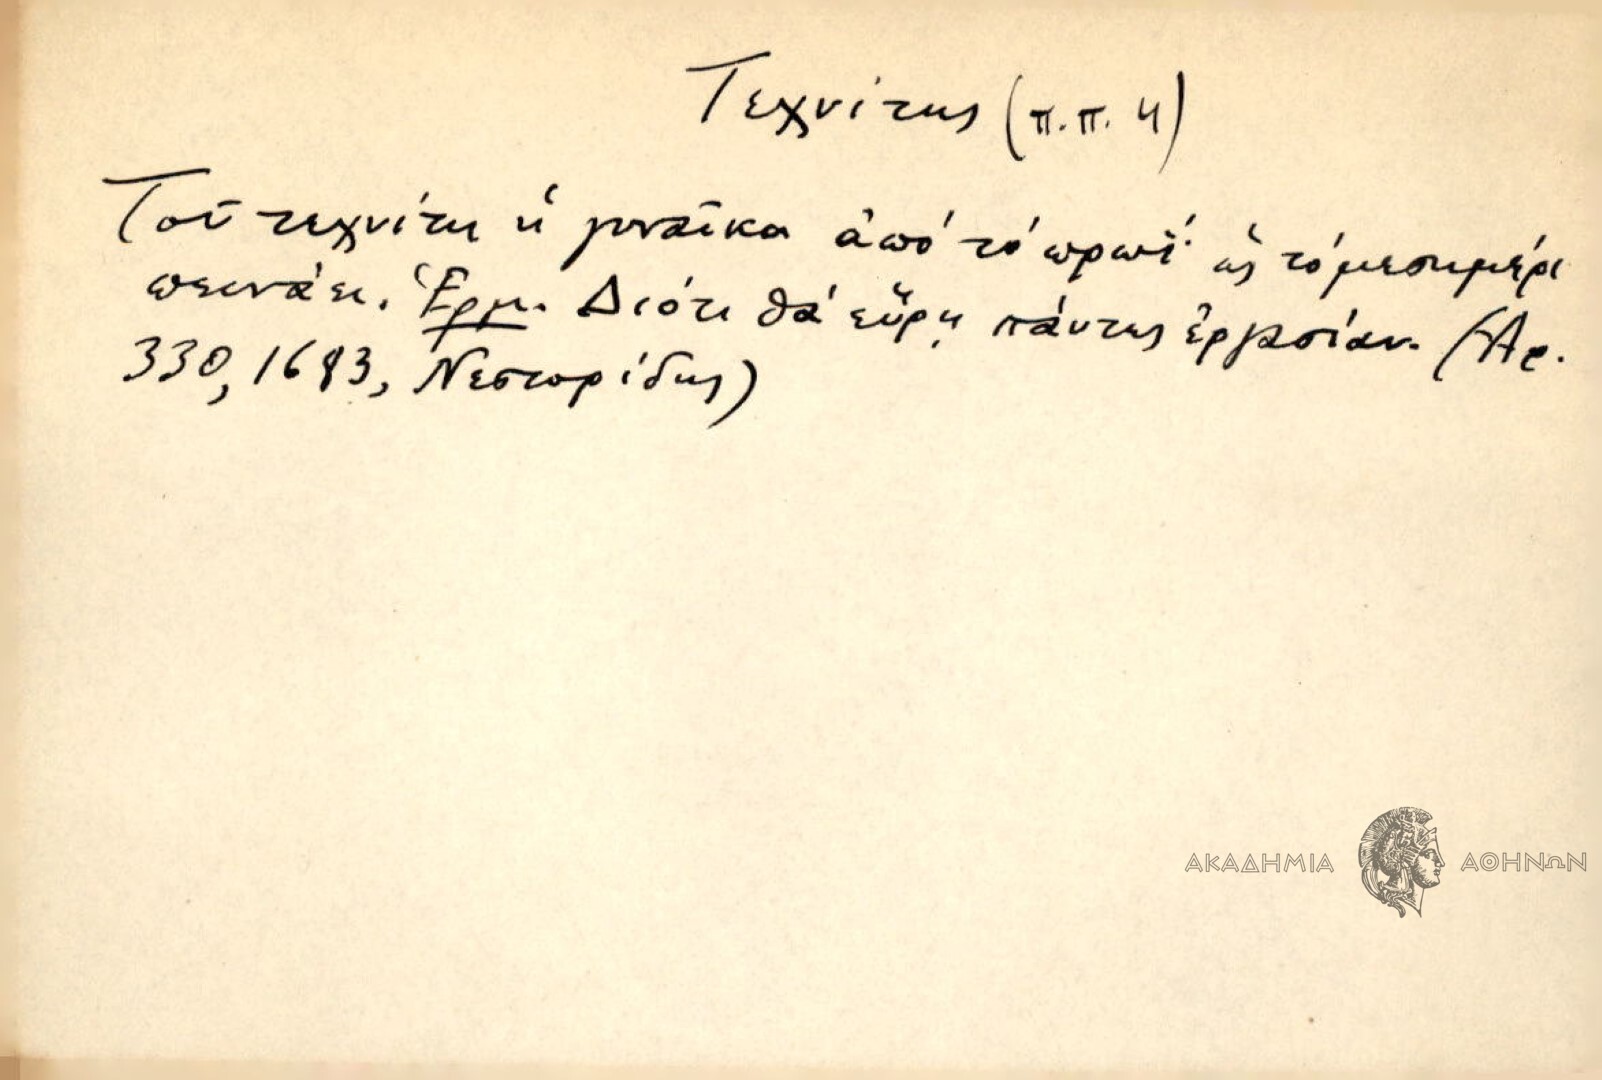 Τεχνίτης (π.π. 4)
Τοῦ τεχνίτη ἡ γυναῖκα ἀπό τό πρωΐ ὡς τό μεσημέρι
πεινάει. Ἑρμ. Διότι θά εὕρῃ πάντως ἐργασίαν. (Ἀρ.
330, 1683, Νεστορίδης)
ΑΚΑΔΗΜΙΑ ΑΘΗΝΩΝ